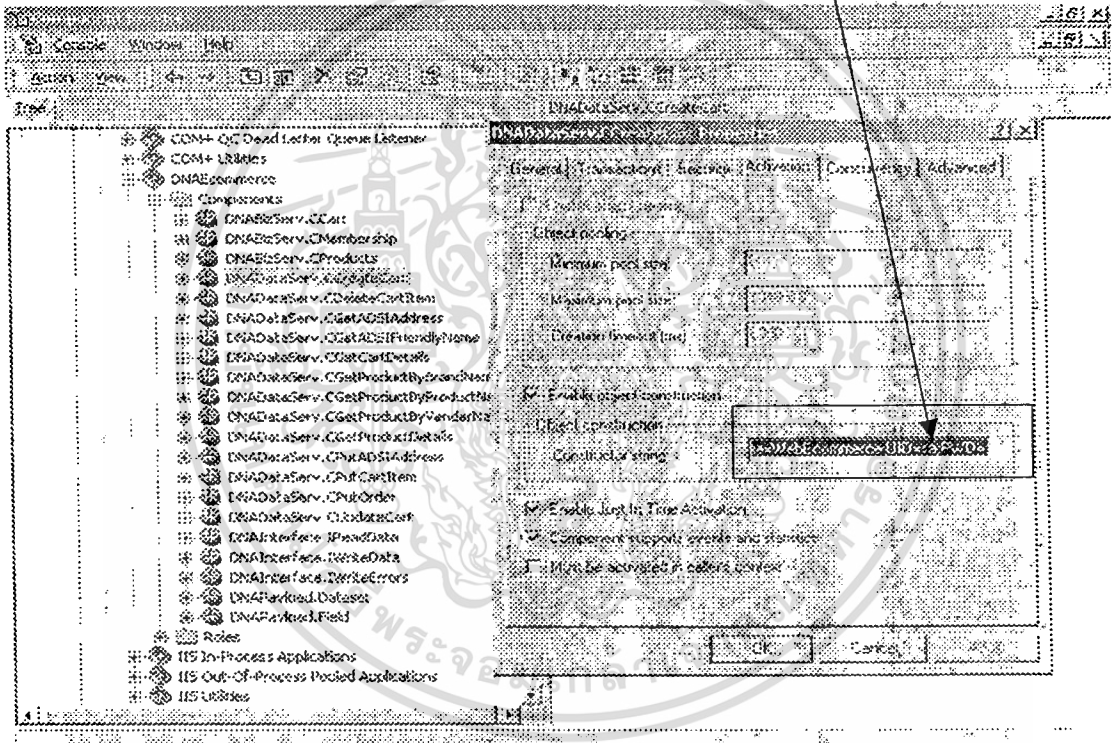 Console Window Help
Action View
Tree
DNADataServ.CCreateCart
COM+ QC Dead Letter Queue Listener
COM+ Utilities
DNAEcommerce
Components
DNABizServ.CCart
DNABizServ.CMembership
DNABizServ.CProducts
DNADataServ.CCreateCart
DNADataServ.CDeleteCartItem
DNADataServ.CGetADSIAddress
DNADataServ.CGetADSIFriendlyName
DNADataServ.CGetCartDetails
DNADataServ.CGetProductByBrandNam
DNADataServ.CGetProductByProductNa
DNADataServ.CGetProductByVendorNa
DNADataServ.CGetProductDetails
DNADataServ.CPutADSIAddress
DNADataServ.CPutCartItem
DNADataServ.CPutOrder
DNADataServ.CUpdateCart
DNAInterface.IReadData
DNAInterface.IWriteData
DNAInterface.IWriteErrors
DNAPayload.Dataset
DNAPayload.Field
Roles
IIS In-Process Applications
IIS Out-Of-Process Pooled Applications
IIS Utilities
General Transactions Security Activation Concurrency Advanced
Object pooling
Minimum pool size
Maximum pool size
Creation timeout (ms)
Enable object construction
Object construction
Constructor string
Enable Just In Time Activation
Component supports events and statistics
Must be activated in caller's context
OK Cancel